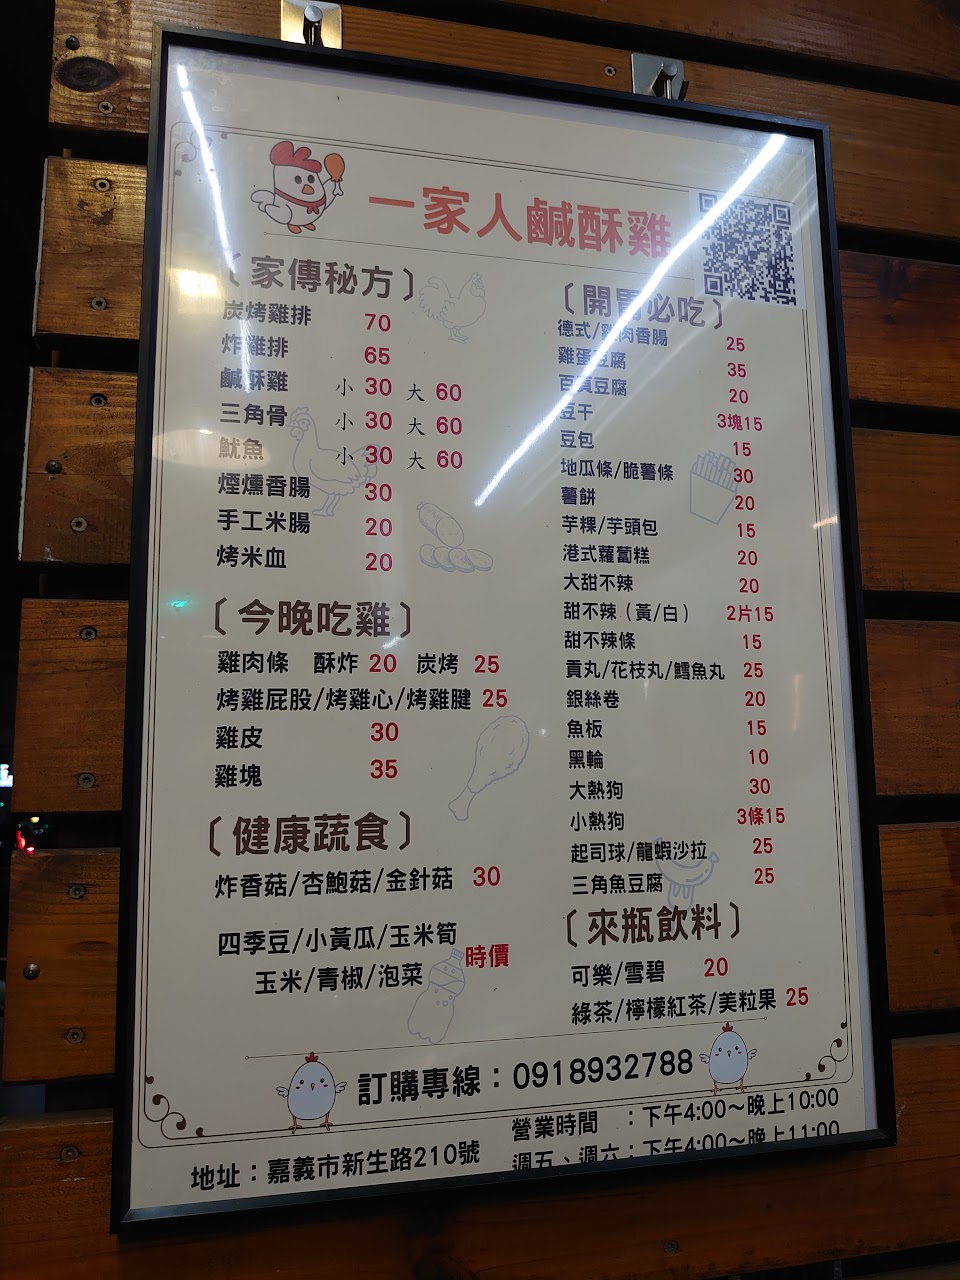 一家人鹹酥雞
〔家傳秘方〕
炭烤雞排 70
炸雞排 65
鹹酥雞 小 30 大 60
三角骨 小 30 大 60
魷魚 小 30 大 60
煙燻香腸 30
手工米腸 20
烤米血 20
〔今晚吃雞〕
雞肉條 酥炸 20 炭烤 25
烤雞屁股/烤雞心/烤雞腱 25
雞皮 30
雞塊 35
〔健康蔬食〕
炸香菇/杏鮑菇/金針菇 30
四季豆/小黃瓜/玉米筍
玉米/青椒/泡菜 時價
〔開胃必吃〕
德式/雞肉香腸 25
雞蛋豆腐 35
百頁豆腐 20
豆干 3塊15
豆包 15
地瓜條/脆薯條 30
薯餅 20
芋粿/芋頭包 15
港式蘿蔔糕 20
大甜不辣 20
甜不辣（黃/白） 2片15
甜不辣條 15
貢丸/花枝丸/鱈魚丸 25
銀絲卷 20
魚板 15
黑輪 10
大熱狗 30
小熱狗 3條15
起司球/龍蝦沙拉 25
三角魚豆腐 25
〔來瓶飲料〕
可樂/雪碧 20
綠茶/檸檬紅茶/美粒果 25
訂購專線：0918932788
地址：嘉義市新生路210號
營業時間 ：下午4:00～晚上10:00
週五、週六：下午4:00～晚上11:00